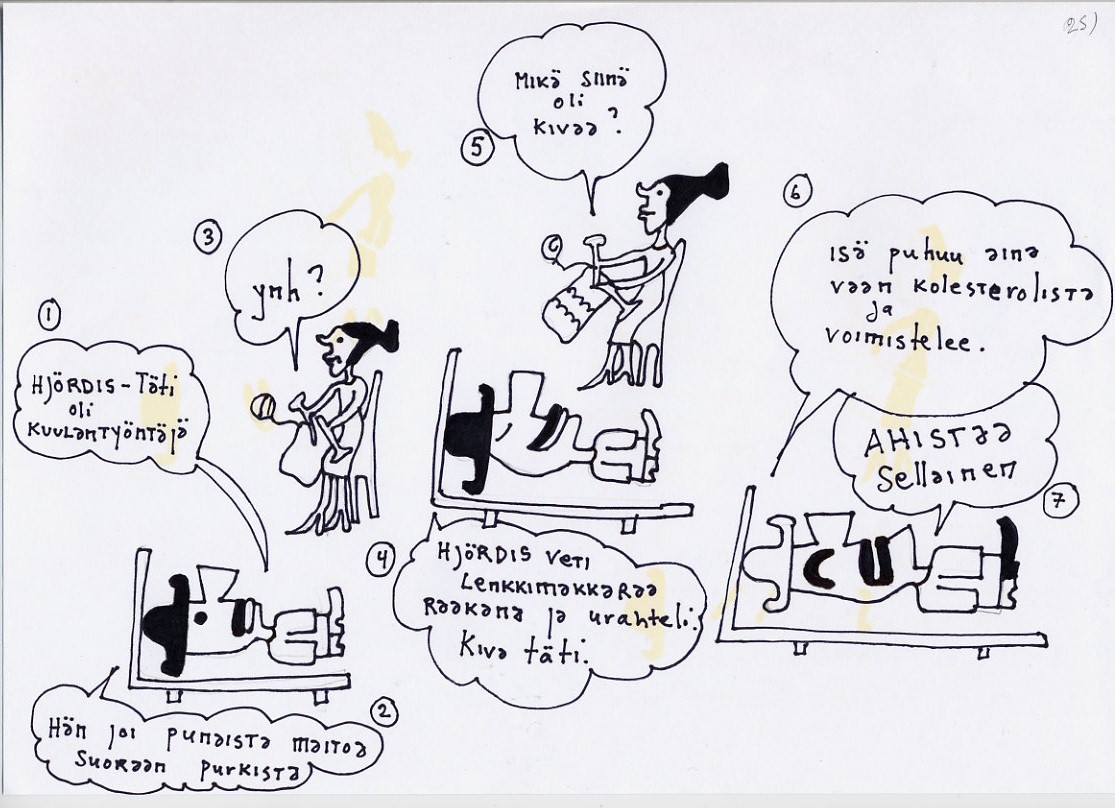 25)
1
HJÖRDIS-Täti
oli
KUULANTYÖNTÄJÄ
2
Hän joi punaista maitoa
Suoraan purkista
3
ynh?
4
HJÖRDIS veti
Lenkkimakkaraa
Raakana ja urahteli.
Kiva täti.
5
Mikä siinä
oli
kivaa?
6
isä puhuu aina
vaan kolesterolista
ja
voimistelee.
AHISTAA
Sellainen
7